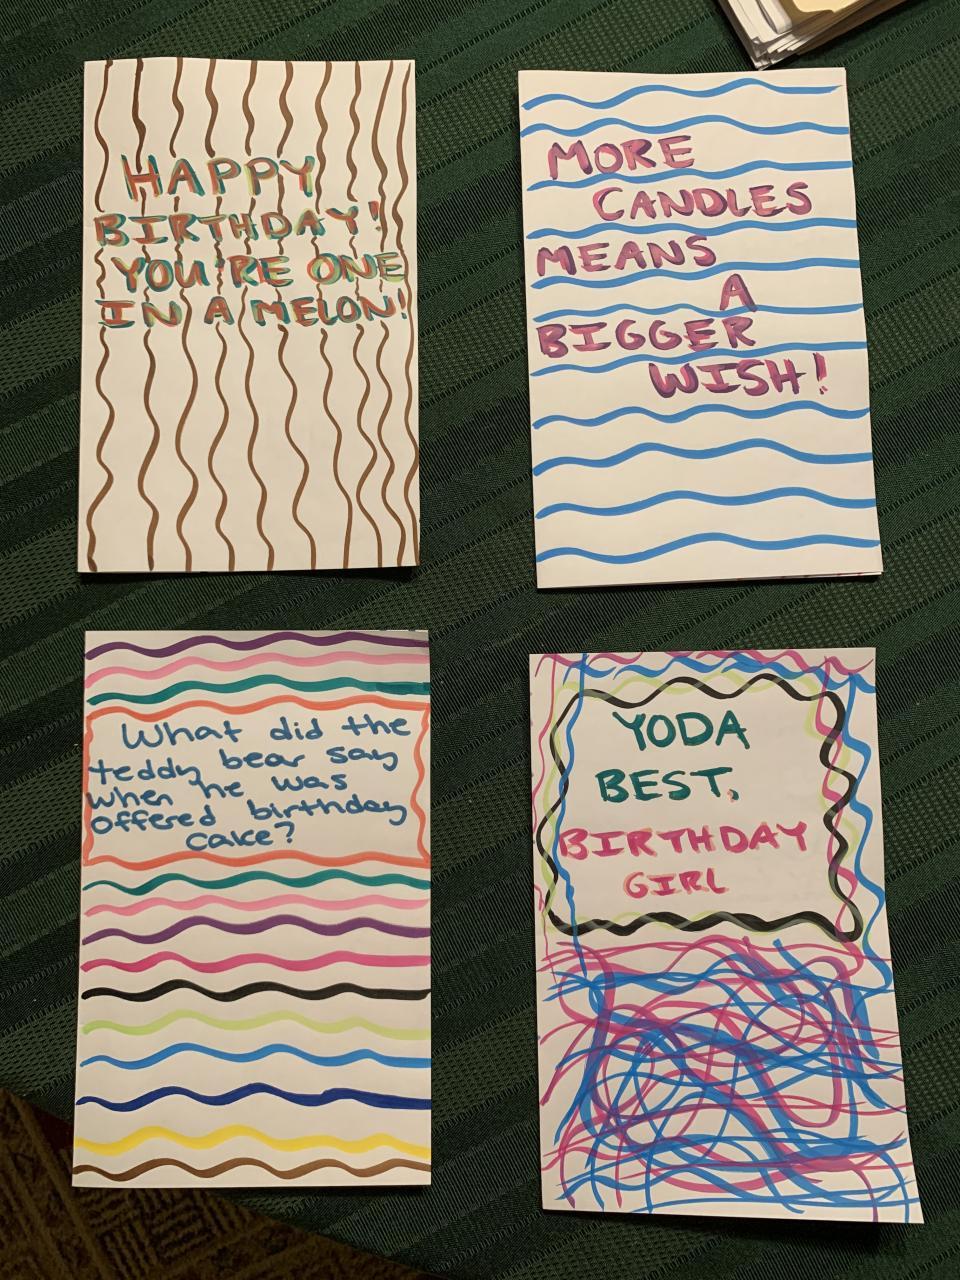 HAPPY
BIRTHDAY!
YOU'RE ONE
IN A MELON!
MORE
CANDLES
MEANS
A
BIGGER
WISH!
What did the
teddy bear say
when he was
offered birthday
cake?
YODA
BEST,
BIRTHDAY
GIRL